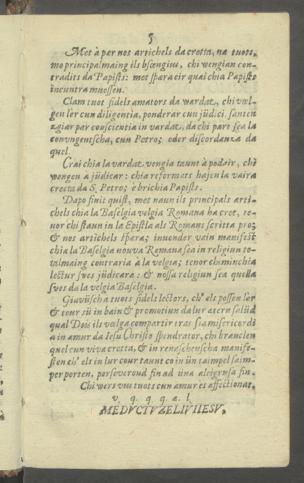 5
Met à per nos artichels da cretta, na tuots,
mo principalmaing ils bsœngius, chi vengian con-
tradits da Papists: mot spara eir qual chia Papists
incuntra muossen.
Clam tuot fidels amaturs da vardat, chi vœl-
gen ler cun diligentia, ponderar cun jüdici, santen-
zgiar per conscientia in vardat, da chi part sea la
convngentscha, cun Petro; oder discordanza da
quel.
Crai chia la vardat vengia taunt à podair, chè
vengen à jüdicar: chia reformats hajen la vaira
cretta da S. Petro; è brichia Papists.
Dapo finis quist, met naun ils principals arti-
chels chia la Baselgia velgia Romana ha cret, te-
nor chi staun in la Epistla als Romans scritta pro;
& nos artichels spera; inuender vain manifest
chia la Baselgia nouva Romana sea in religiun to-
talmaing contraria à la velgia; tenor chi minchia
lectur sves jüdicara: & nossa religiun sea quella
sves da la velgia Baselgia.
Giavüscha tuots fidels lectors, ch' els possen ler
& tour sü in bain & promotiun da lur æterr salüd
qual Dois ils velga compartir tras sia misericordi
a in amur da Iesu Christo spendrator, chi brancien
quel cun viva cretta, & in renaschenscha manife-
stien ch' els in lur cour taat co in ün taimpel saim-
per porten, perseverond fin ad üna aleigrusa fin.
Chi vers vus tuots cun amur et affectionat,
v. q. q. q. a. l.
MEDVCTVZELIVIIESV.